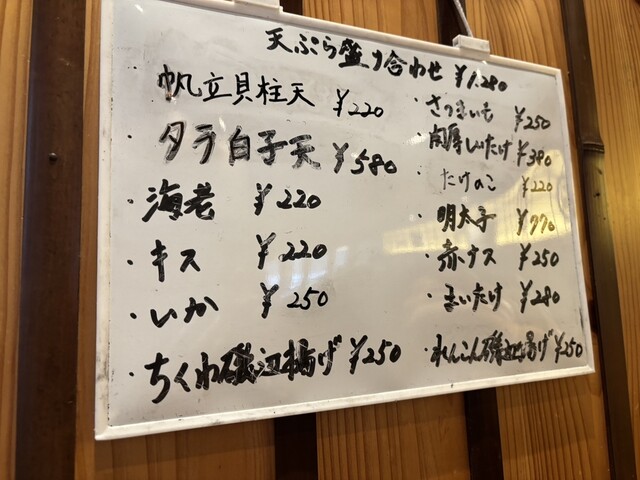 天ぷら盛り合わせ ¥1.280
帆立貝柱天 ¥220
タラ白子天 ¥580
・海老 ¥220
・キス ¥220
・いか ¥250
・ちくわ磯辺揚げ ¥250
・さつまいも ¥250
・肉厚しいたけ ¥380
・たけのこ ¥220
・明太子 ¥770
・赤ナス ¥250
・まいたけ ¥280
・れんこん磯辺揚げ ¥250